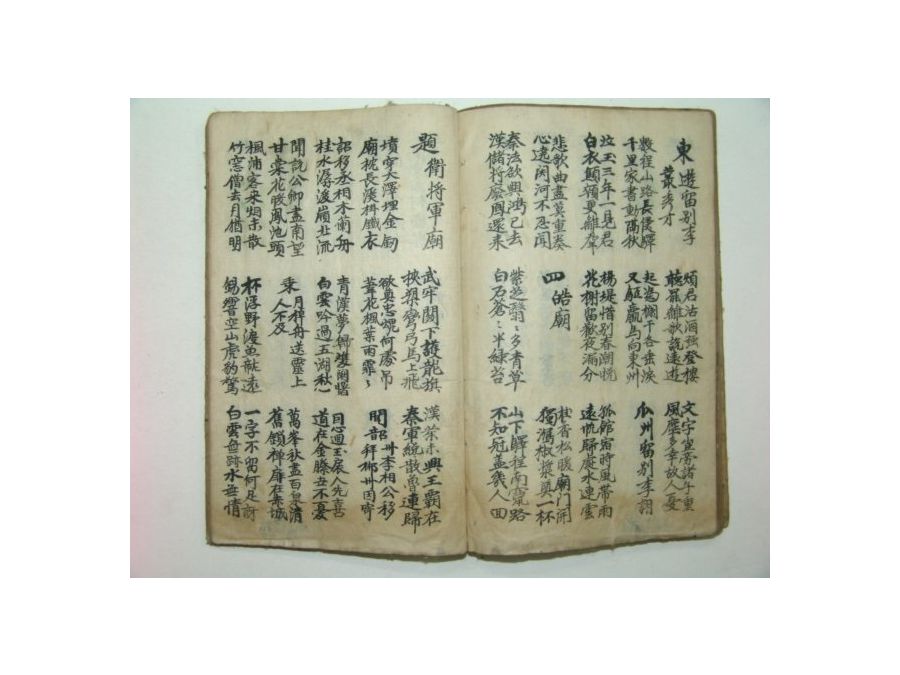 東遊留別李
叢秀才
煩君沽酒強登樓
聽罷離歌說遠遊
文字豈勞諸子重
風塵多幸故人憂
數程山路長侵驛
千里家書動隔秋
起憑欄干各垂淚
又驅羸馬向東州
瓜州留別李詡
泣玉三年一見君
白衣顛領更離群
楊堤惜別春潮晚
花榭留歡夜漏分
孤館宿時風帶雨
遠帆歸處水連雲
悲歌曲盡莫重奏
心遶関河不忍聞
四皓廟
桂香松暖廟門開
獨瀉椒漿奠一杯
秦法欲興鴻已去
漢儲將廢鳳還來
紫芝翳〻多青草
白石蒼〻半綠苔
山下驛程南竄路
不知冠盖幾人回
題衛將軍廟
武牢関下護龍旗
挾槊彎弓馬上飛
漢業未興王霸在
秦軍纔散魯連歸
墳穿大澤埋金劒
廟枕長溪掛鐵衣
欲奠忠魂何處吊
葦花楓葉雨霏〻
聞韶州李相公移
拜郴州因寄
詔移丞相木蘭舟
桂水潺湲嶺北流
青漢夢歸雙闕曙
白雲吟過五湖秋
恩迴玉扆人先喜
道在金縢世不憂
聞說公卿盡南望
甘棠花暖鳳池頭
乘月棹舟送靈上
人不及
萬峯秋盡百泉清
舊鎖禪扉在赤城
楓浦客來烟未散
竹窓僧去月猶明
杯浮野渡魚龍遠
錫響空山虎豹驚
一字不留何足訝
白雲無跡水無情